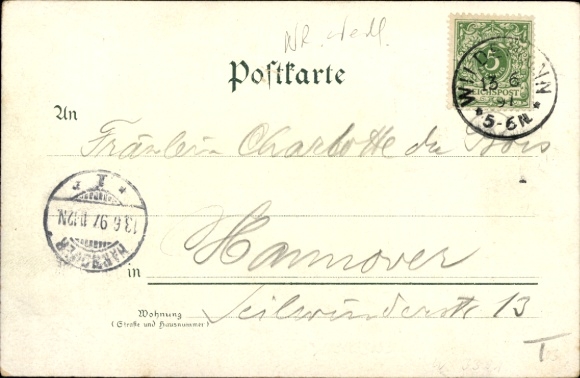 Postkarte
5
REICHSPOST
13 6
97
*5-6N.*
An
Fräulein Charlotte du Bois
13.6.97. 11-12N
HANNOVER
in Hannover
Wohnung
(Straße und Hausnummer)
Seilwinderstr 13